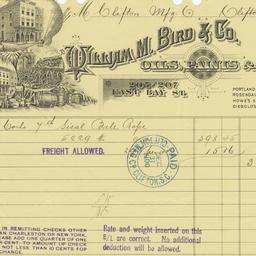 D. M. Clifton Mfg. Co Clifton
WILLIAM M. BIRD & CO.
OILS, PAINTS &
205/207
EAST BAY ST.
PORTLAND
ROSENDAL
HOWE'S S
DIEBOLD
Coils 7th Sisal Bale Rope
5229 #
FREIGHT ALLOWED.
PAID
CLIFTON, S.C.
E IN REMITTING CHECKS OTHER
AN CHARLESTON OR NEW YORK,
EASE ADD ONE QUARTER OF ONE
R-CENT- TO AMOUNT OF CHECK
T NOT LESS THAN 10 CENTS FOR
CHANGE.
Rate and weight inserted on this
B/L are correct. No additional
deduction will be allowed.